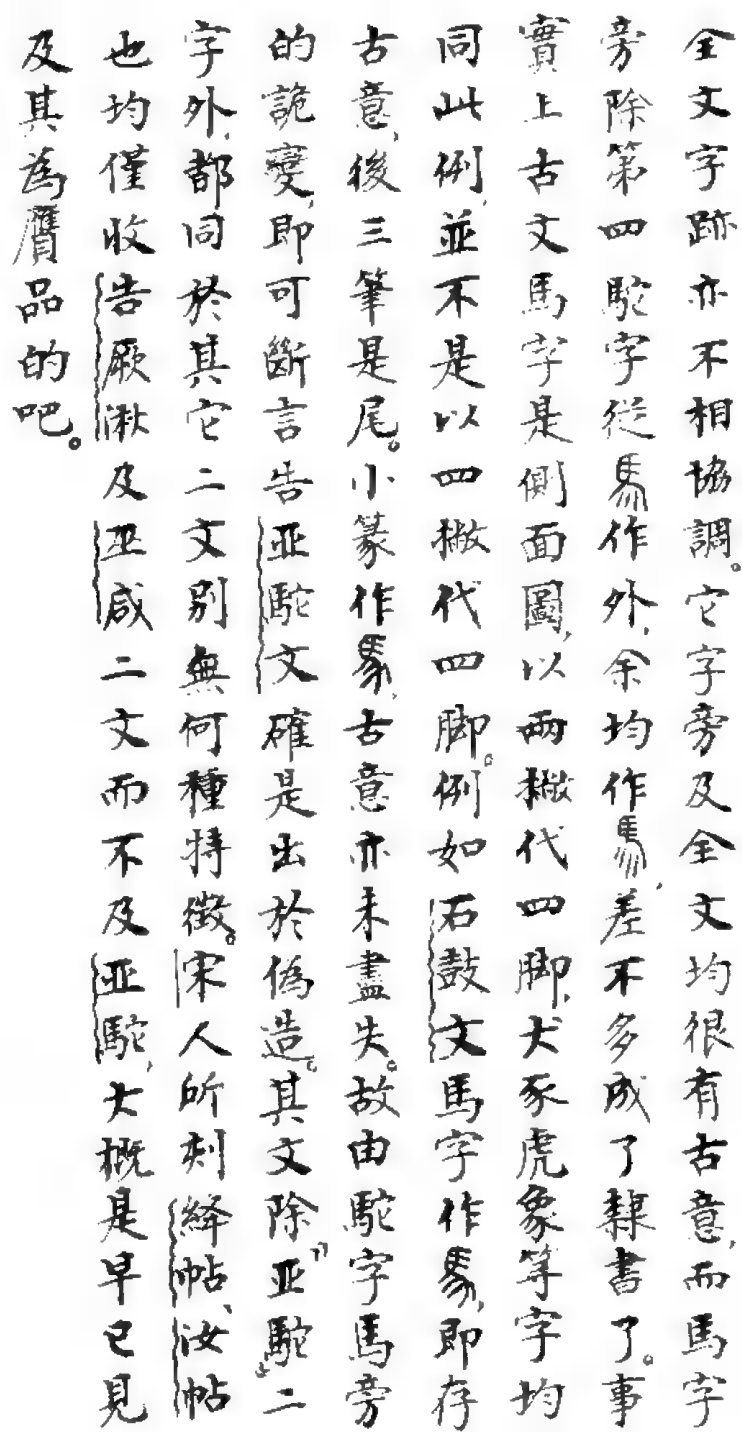 全文字跡亦不相協調。它字旁及全文均很有古意，而馬字
旁除第四駝字從馬作外，余均作馬，差不多成了隸書了。事
實上古文馬字是側面圖，以兩撇代四脚，犬豕虎象等字均
同此例，並不是以四撇代四脚。例如石鼓文馬字作馬，即存
古意，後三筆是尾。小篆作馬，古意亦未盡失。故由駝字馬旁
的詭變，即可斷言告亚駝文確是出於偽造。其文除“亚駝”二
字外，都同於其它二文別無何種特徵。宋人所刻絳帖、汝帖
也均僅收告厥湫及巫咸二文而不及亚駝，大概是早已見
及其為贗品的吧。